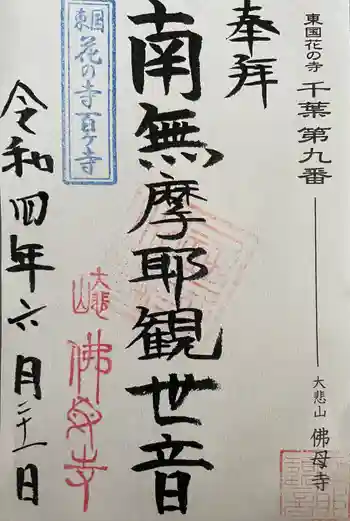 東国花の寺 千葉 第九番
大悲山 佛母寺
奉拝
南無摩耶観世音
東国
花の寺百ヶ寺
大悲山
佛母寺
令和四年六月二十一日